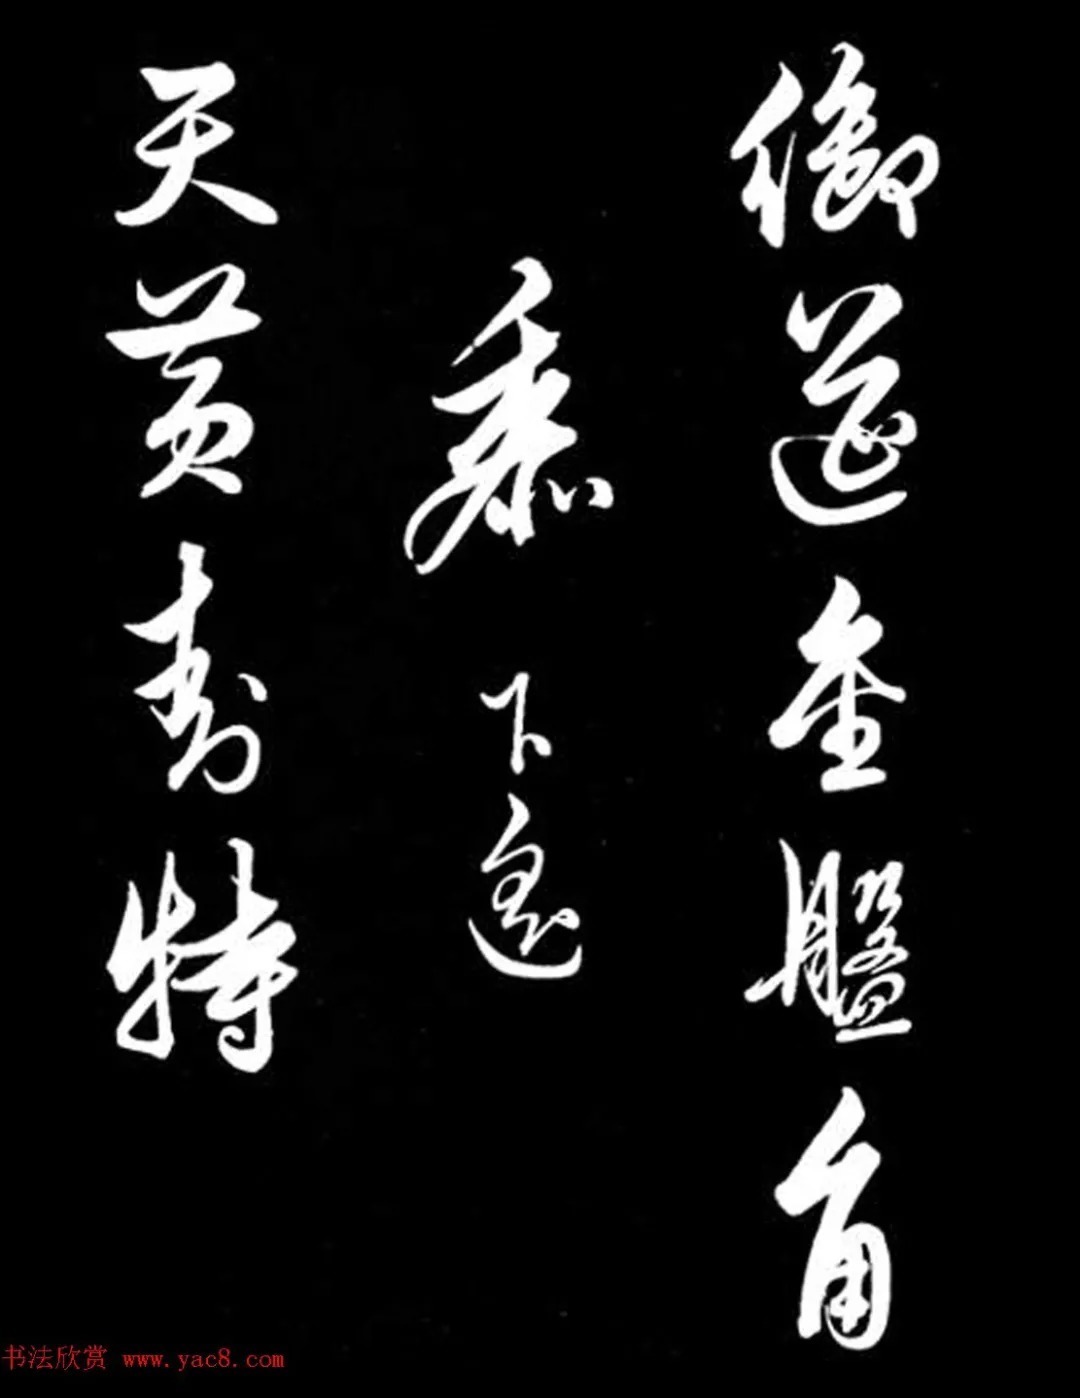 御筵金盤角
黍下遙
天黄封特
书法欣赏 www.yac8.com